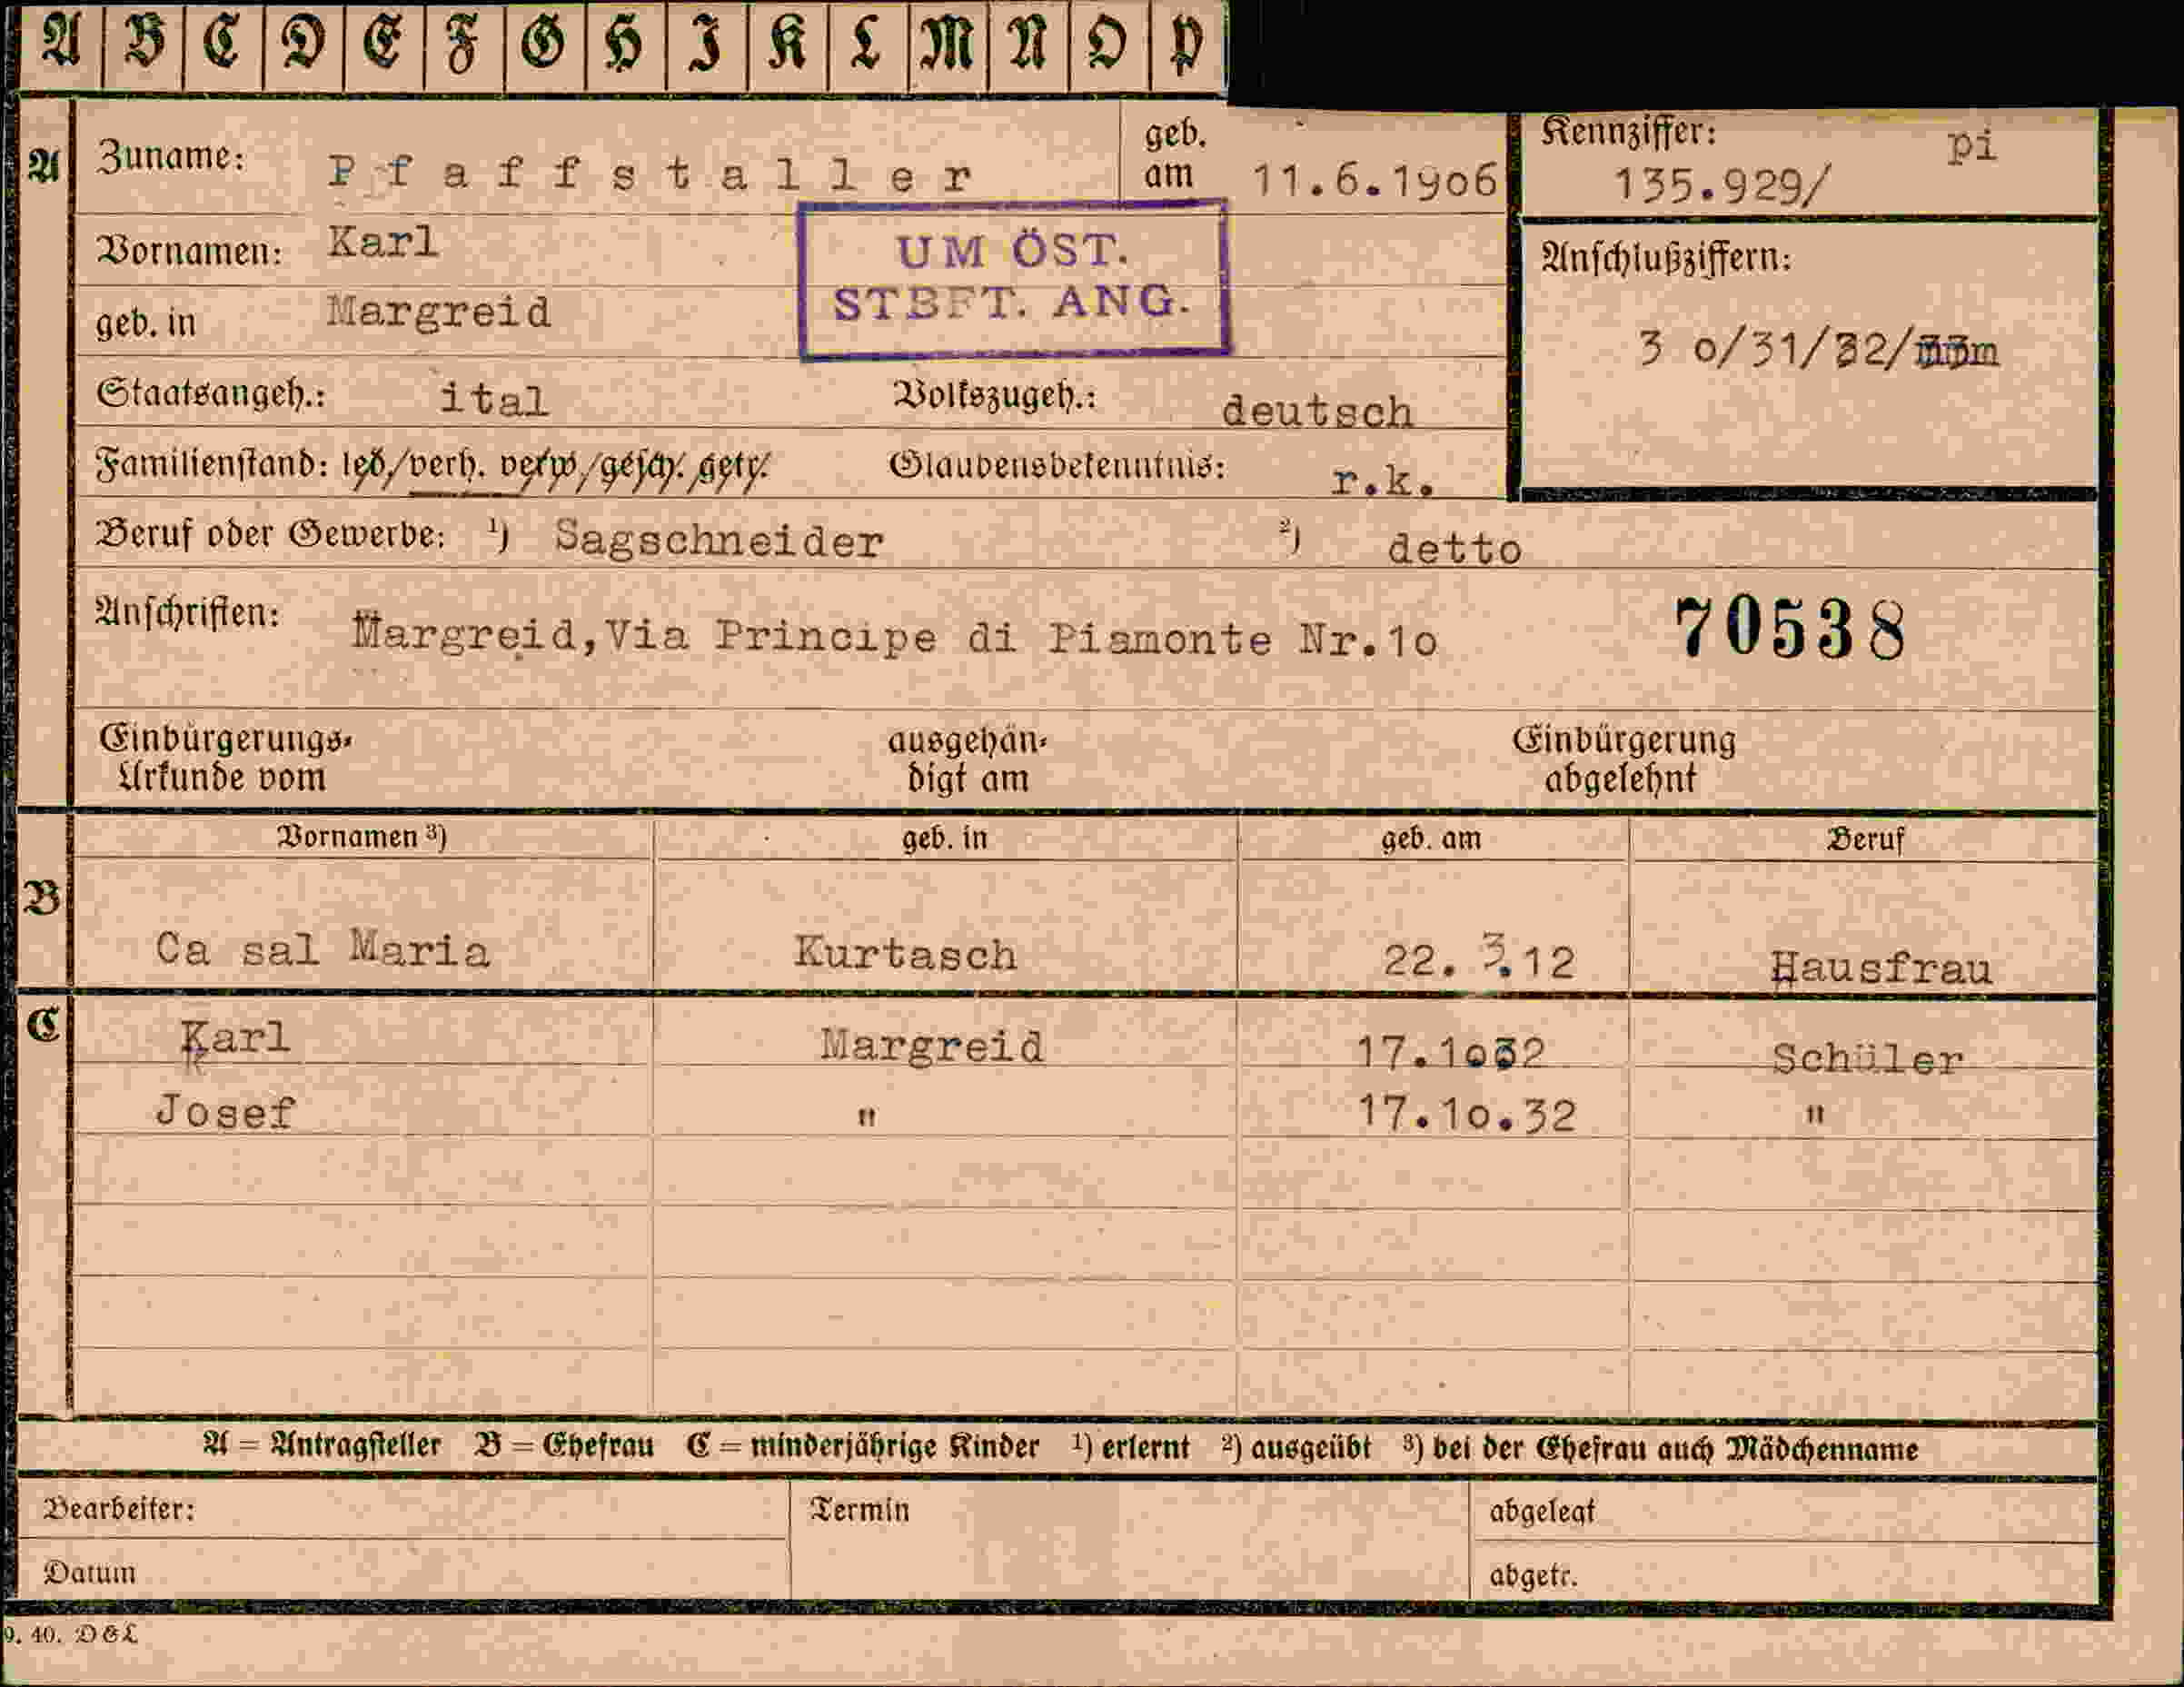 A B C D E F G H I K L M N O P
A Zuname: Pfaffstaller geb. am 11.6.1906
Kennziffer: pi
135.929/
Vornamen: Karl
UM ÖST.
STBFT. ANG.
Anschlußziffern:
geb. in Margreid
3 o/31/32/
Staatsangeh.: ital Volkszugeh.: deutsch
Familienstand: led/verh. verw/gesch. getr. Glaubensbekenntnis: r.k.
Beruf oder Gewerbe: 1) Sagschneider 2) detto
Anschriften: Margreid,Via Principe di Piamonte Nr.1o 70538
Einbürgerungs- ausgehän- Einbürgerung
Urkunde vom digt am abgelehnt
Vornamen 3) geb. in geb. am Beruf
B Ca sal Maria Kurtasch 22. 3.12 Hausfrau
C Karl Margreid 17.1032 Schüler
Josef " 17.10.32 "
A = Antragsteller B = Ehefrau C = minderjährige Kinder 1) erlernt 2) ausgeübt 3) bei der Ehefrau auch Mädchenname
Bearbeiter: Termin abgelegt
Datum abgetr.
9. 40. DGL